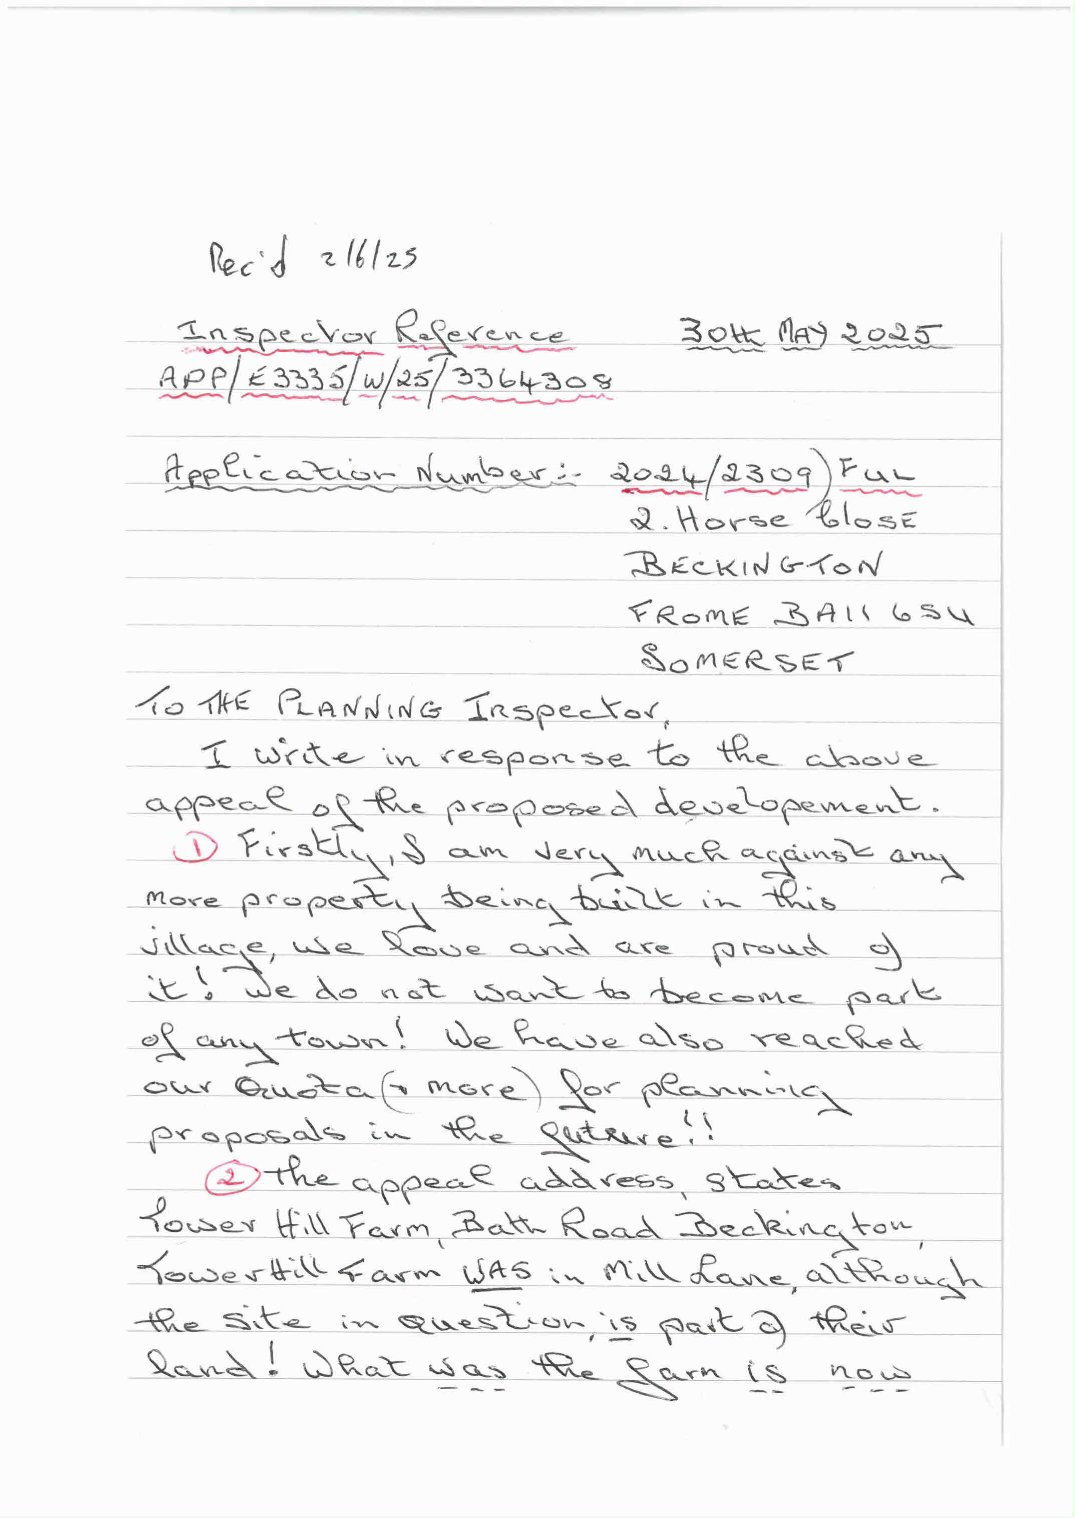 Rec'd 2/6/25
Inspector Reference 30th MAY 2025
APP/E3335/W/25/3364308
Application Number:- 2024/2309/FUL
2. Horse Close
BECKINGTON
FROME BA11 6SU
SOMERSET
TO THE PLANNING Inspector,
I write in response to the above
appeal of the proposed developement.
① Firstly, I am very much against any
more property being built in this
village, we love and are proud of
it! We do not want to become part
of any town! We have also reached
our Quota (+ more) for planning
proposals in the future!!
② The appeal address, states
Tower Hill Farm, Bath Road Beckington,
Tower Hill Farm WAS in Mill Lane, although
the site in question, is part of their
land! What was the farm is now